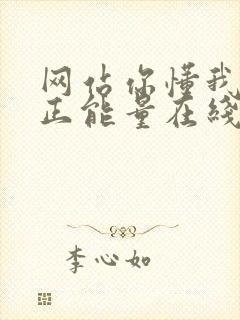 网站你懂我
正能量在线
李心如